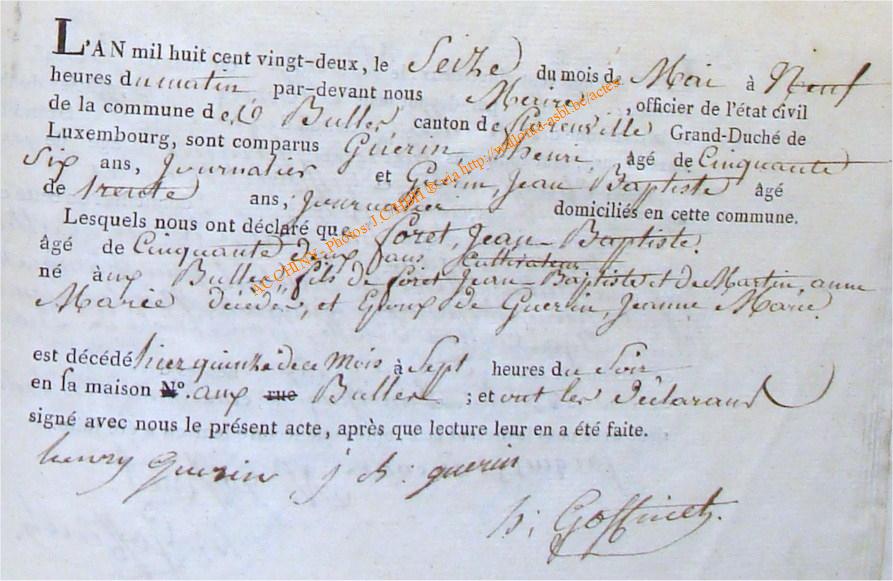 L'AN mil huit cent vingt-deux, le Seize du mois de Mai à Neuf
heures du matin par-devant nous Maire, officier de l'état civil
de la commune de Bulles, canton de Florenville Grand-Duché de
Luxembourg, sont comparus Guerin, Henri, âgé de Cinquante
Six ans, Journalier et Guerin, Jean Baptiste âgé
de trente ans, Journalier domiciliés en cette commune.
Lesquels nous ont déclaré que Foret, Jean-Baptiste.
âgé de Cinquante deux ans Cultivateur
né aux Bulles, fils de Foret, Jean-Baptiste et de Martin, anne
Marie décédés, et Epoux de Guerin, Jeanne Marie.
est décédé hier quinze de ce Mois à Sept heures du Soir
en sa maison N°. aux rue Bulles ; et ont les Déclarans
signé avec nous le présent acte, après que lecture leur en a été faite.
henry guerin j b: guerin
h; Goffinet.
ACCHINY - Photos: J.C. via http://wallonia-asbl.be/actes